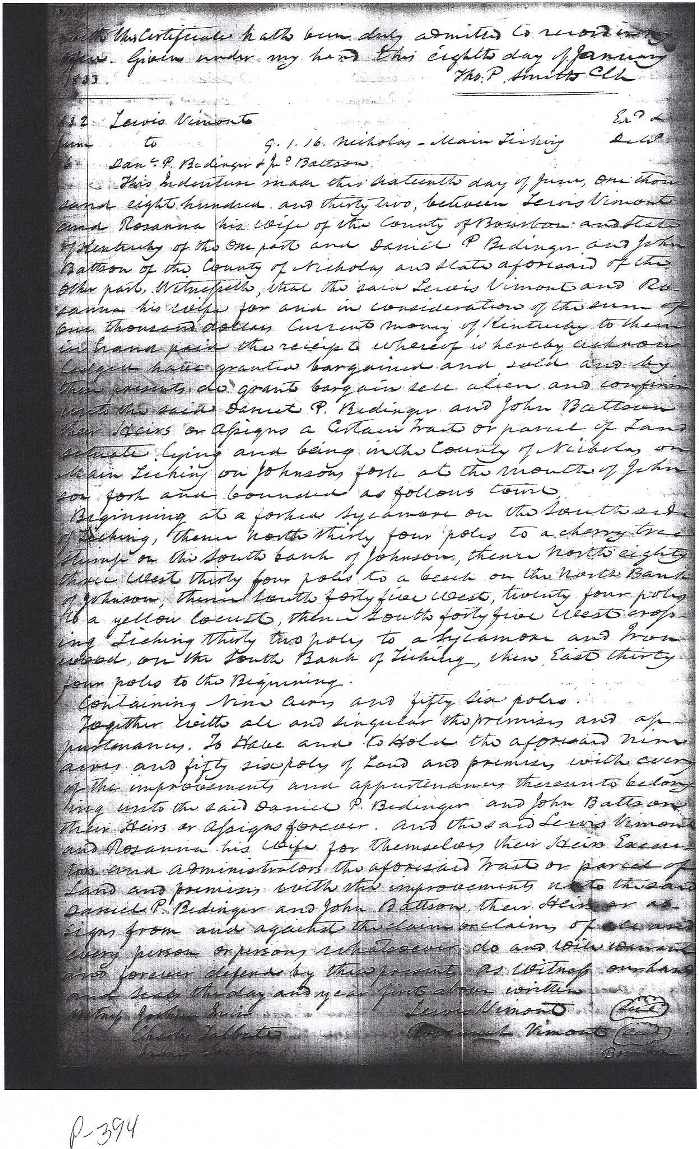 with this Certificate hath been duly admitted to record in my
office. Given under my hand this eighth day of January
1833
Tho. P. Smith Clk
Lewis Vimont Exd &
June to 9.1.16. Nicholas - Main Licking Deld
16 Danl. P. Bedinger & Jno Battson
This Indenture made this sixteenth day of June, One thou
sand eight hundred and thirty two, between Lewis Vimont
and Rosanna his wife of the County of Bourbon and State
of Kentucky of the One part and Daniel P Bedinger and John
Battson of the County of Nicholas and State aforesaid of the
Other part, Witnesseth, that the said Lewis Vimont and Ro-
sanna his wife for and in consideration of the sum of
One thousand dollars Current money of Kentucky to them
in hand paid the receipt whereof is hereby acknow
ledged hath granted bargained and sold and by
these presents do grant bargain sell alien and confirm
unto the said Daniel P. Bedinger and John Battson
their Heirs or Assigns a Certain tract or parcel of Land
situate lying and being in the County of Nicholas on
Main Licking on Johnsons fork at the mouth of John
son fork and bounded as follows towit
Beginning at a forked Sycamore on the South side
of Licking, thence North thirty four poles to a cherry tree
stump on the South bank of Johnson, thence North eighty
three West thirty four poles to a beech on the North Bank
of Johnson, thence South forty five West, twenty four poles
to a yellow locust, thence South forty five West cross-
ing Licking thirty two poles to a Sycamore and Iron
wood, on the South Bank of Licking, then East thirty
four poles to the Beginning.
Containing Nine Acres and fifty six poles.
Together with all and singular the premises and ap-
purtenances. To Have and to Hold the aforesaid nine
acres and fifty six poles of Land and premises with every
of the improvements and appurtenances thereunto belon
ging unto the said Daniel P. Bedinger and John Battson
their Heirs or Assigns forever. And the said Lewis Vimont
and Rosanna his wife for themselves their Heirs Execu
tors and Administrators the aforesaid tract or parcel of
Land and premises with the improvements unto the said
Daniel P. Bedinger and John Battson, their Heirs or as-
signs from and against the claim or claims of all and
every person or persons whatsoever do and will warrant
and forever defend by these presents as witness our hands
and seals the day and year first above written
Lewis Vimont Seal
Charles Talbutt Rosannah Vimont Seal
Bourbon
P-394